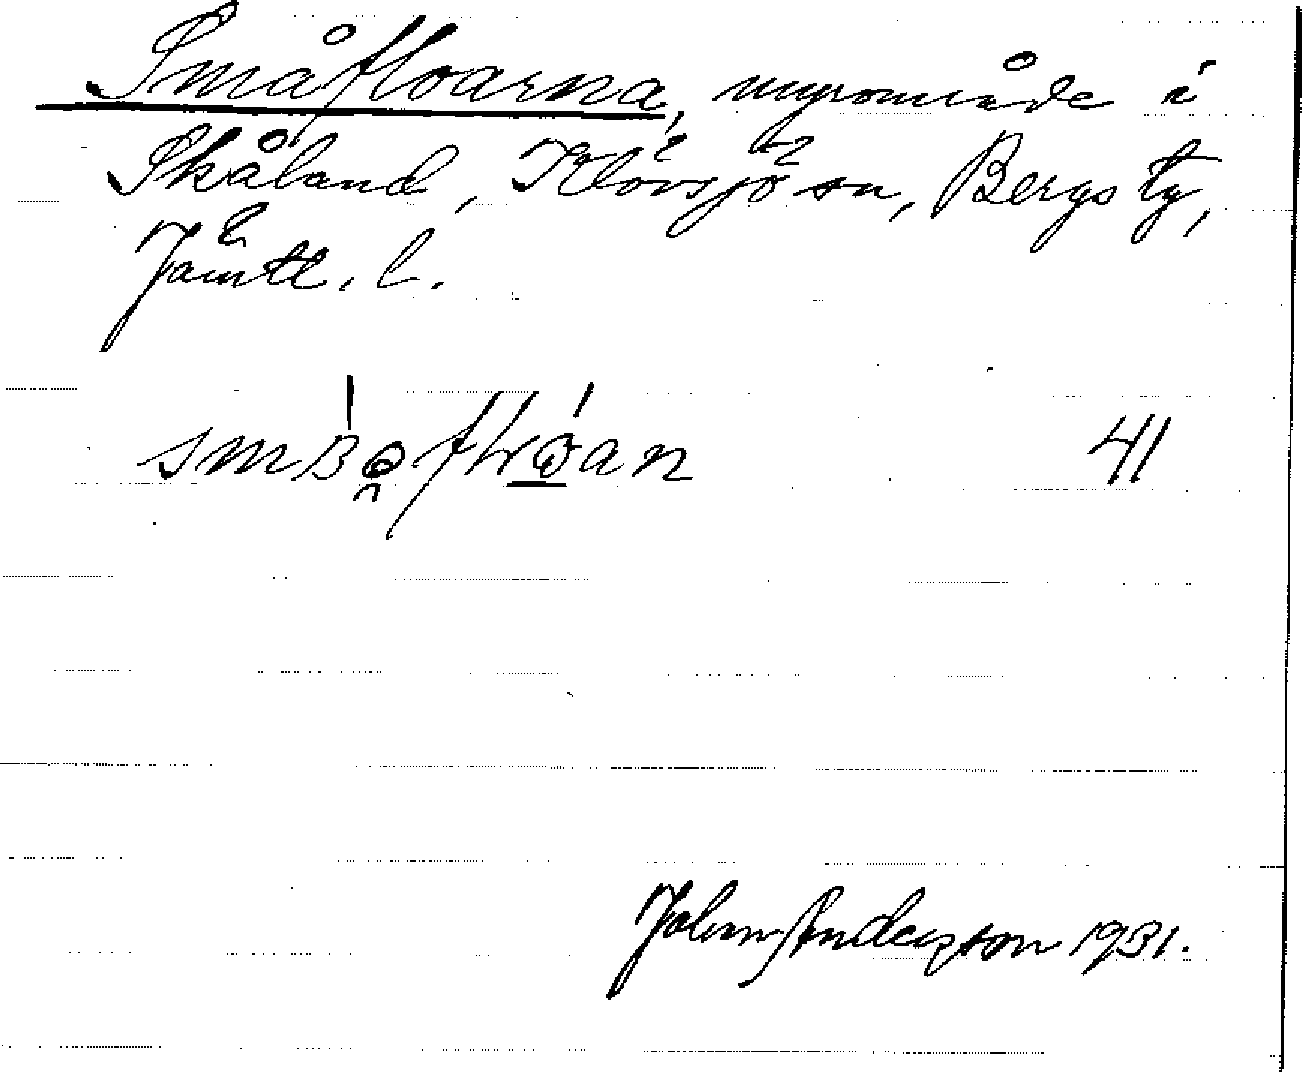 Småfloarna, myrområde i
Skåland, Klövsjö sn, Bergs tg,
Jämtl. l.
41
Johan Anderzson 1931.